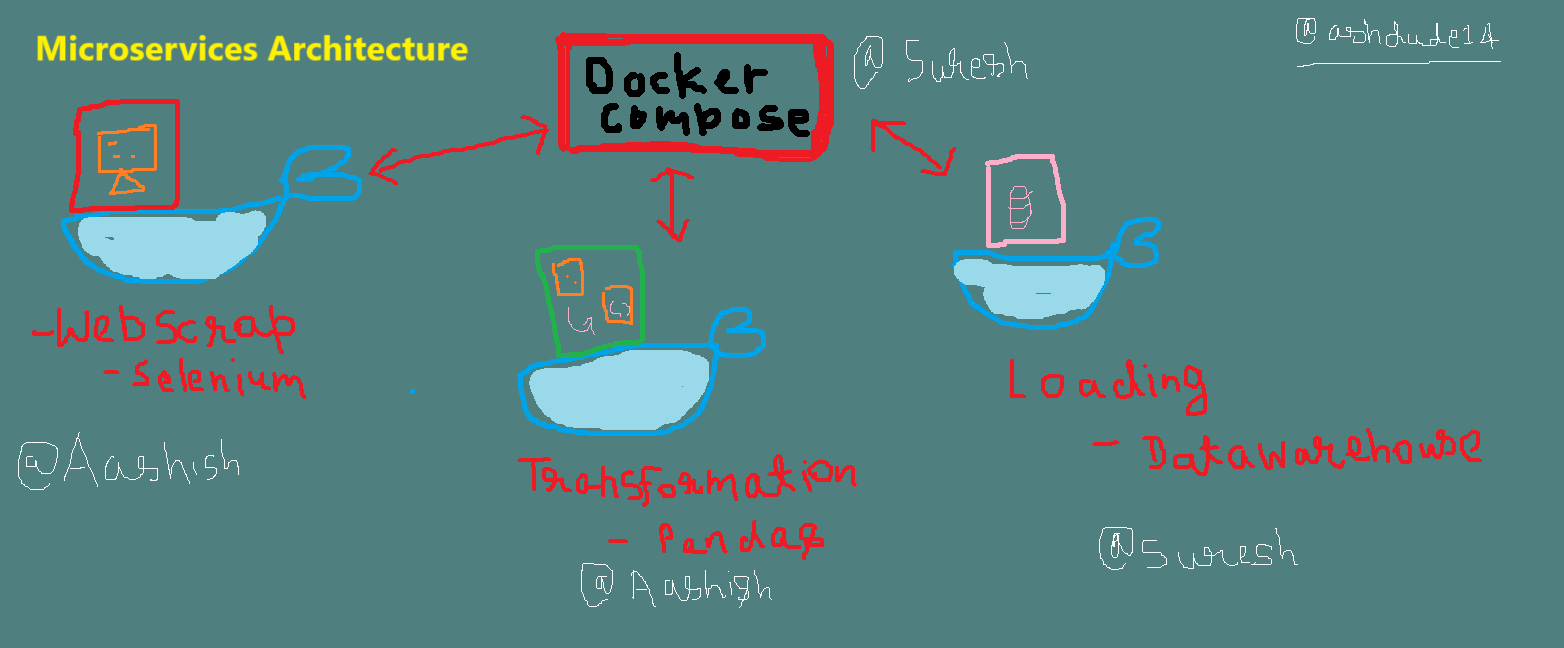 Microservices Architecture
@ashdude14
Docker
compose
@Suresh
-WebScrap
-Selenium
@Aashish
Transformation
- Pandas
@Aashish
Loading
- Datawarehouse
@Suresh